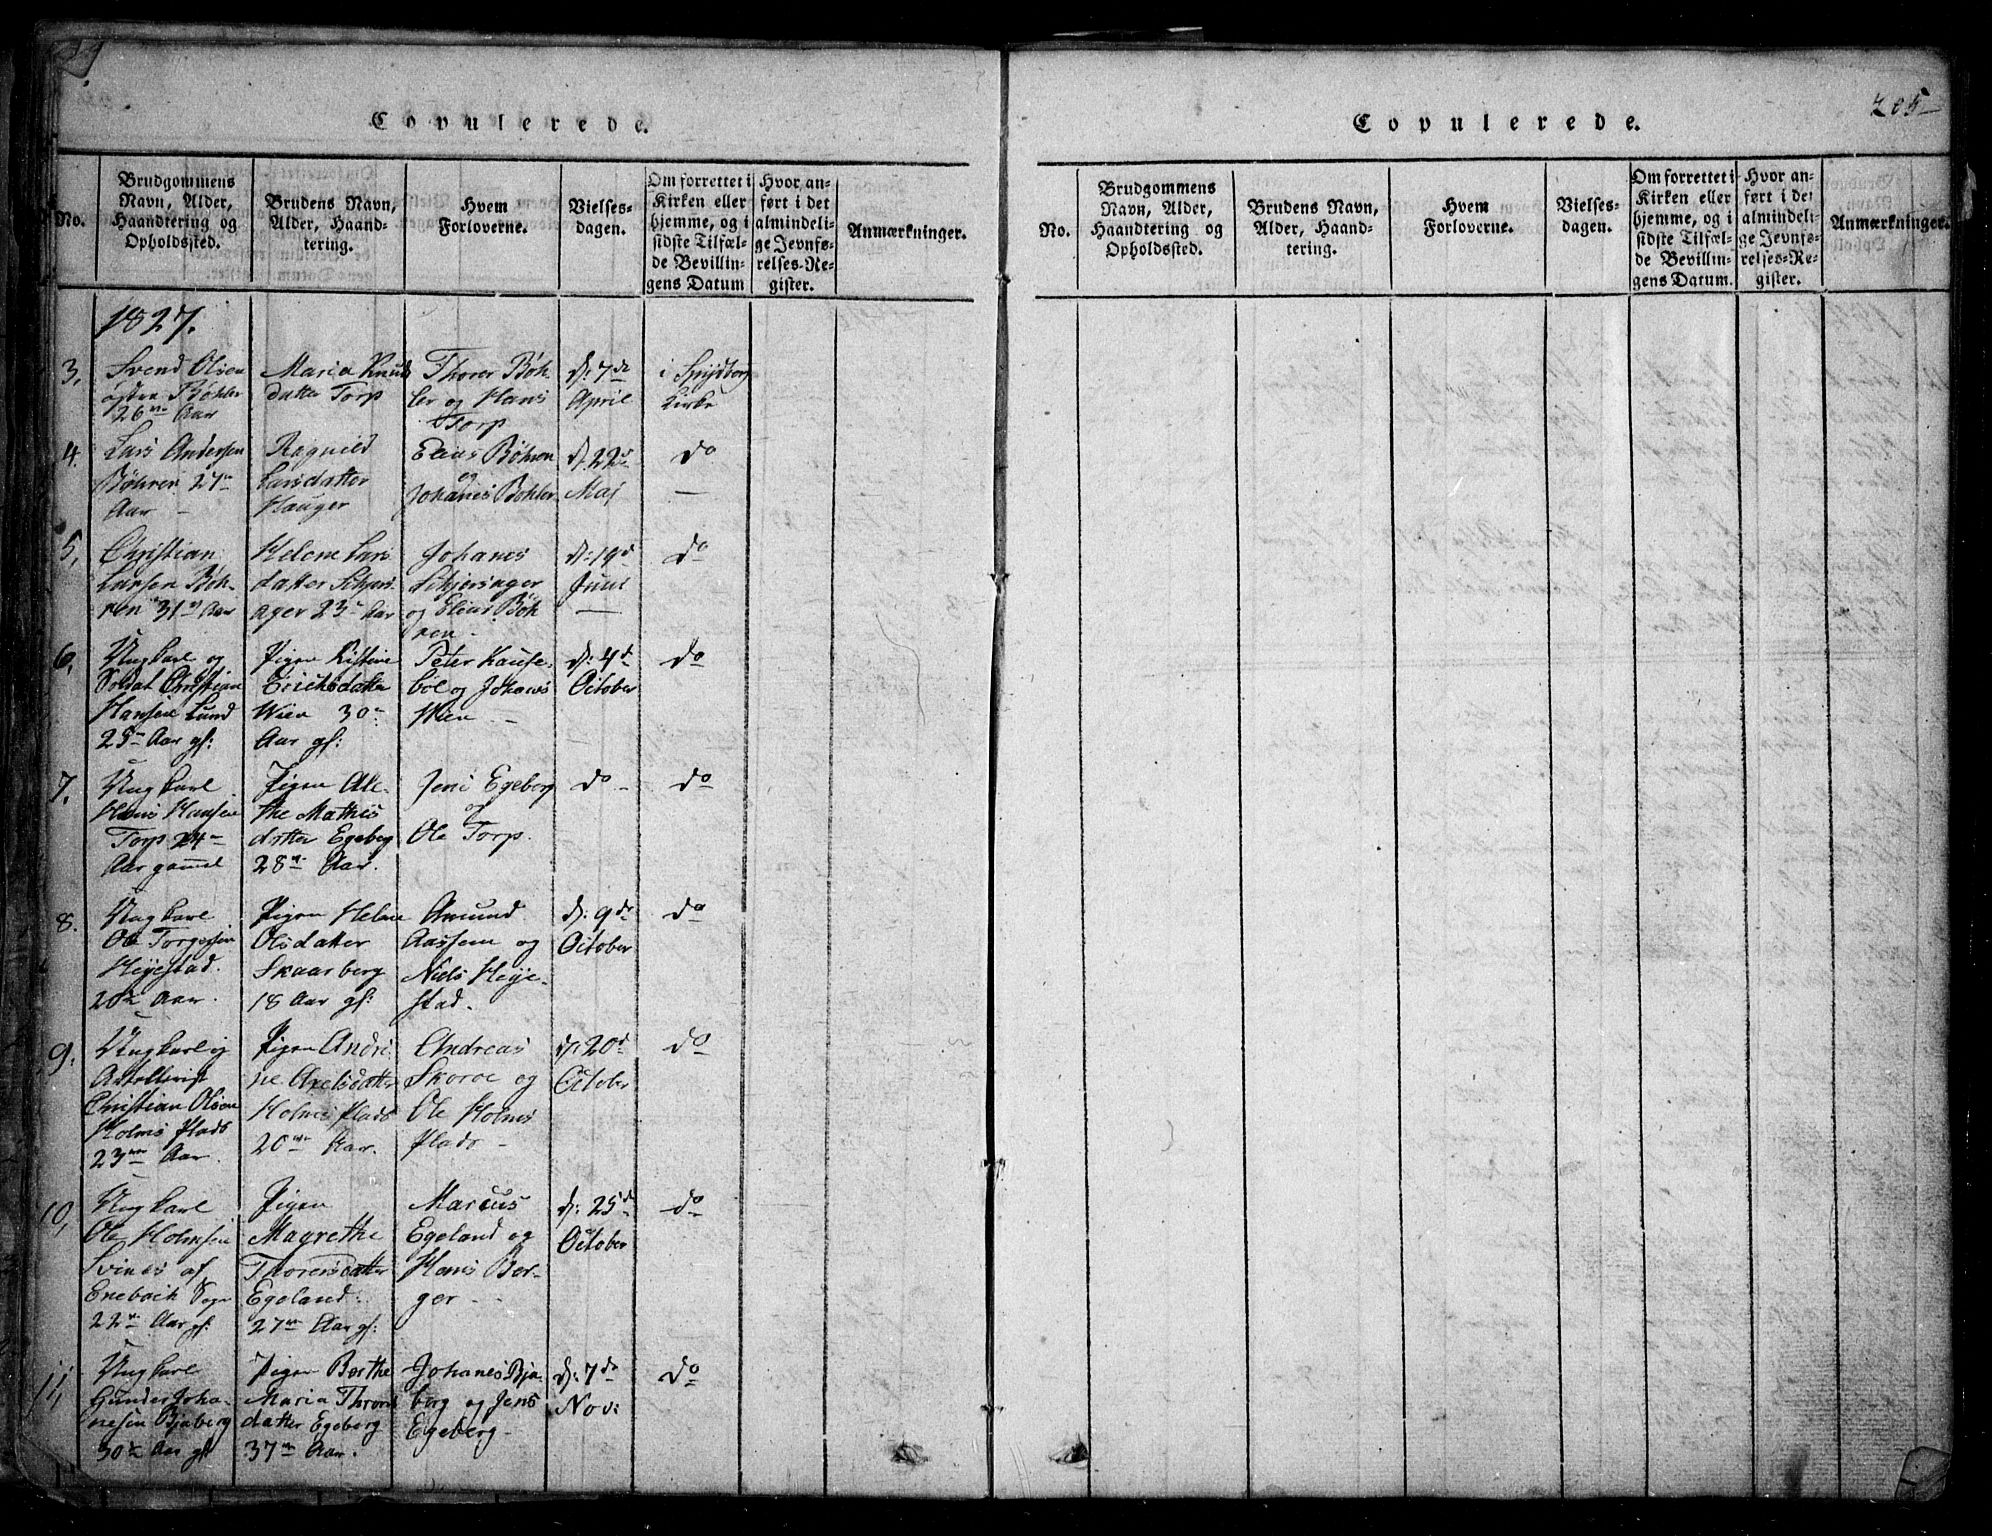 205
Copulerede.
No.
Brudgommens
Navn, Alder,
Haandtering og
Opholdssted.
Brudens Navn,
Alder, Haand-
tering.
Hvem
Forloverne.
Vielses-
dagen.
Om forrettet i
Kirken eller
hjemme, og i
sidste Tilfæl-
de Bevillin-
gens Datum
Hvor an-
ført i det
almindeli-
ge Jevnfø-
relses-Re-
gister.
Anmærkninger.
1827.
3,
Svend Olsen
østre Bøhler
26 Aar
Maria Knuds
datter Torp
Thorer Bøh-
ler og Hans
Torp
d: 7de
April
i Spydberg
Kirke
4.
Lars Andersen
Bøhren 27
Aar
Ragnild
Larsdatter
Hauger
Elias Bøhren
og
Johanes Bøhler
d. 22d
Maj
do
5,
Christian
Larsen Bøh-
ren 31 Aar
Helene Lars
datter Schiers-
ager 23 Aar
Johanes
Schjersager
og Elias Bøh
ren
d: 19d
Juni
do
6,
Ungkarl og
Soldat Christian
Hansen Lund
25 Aar gl:
Pigen Kistine
Erichsdatter
Wien 30
Aar gl:
Peter Kause-
böl og Johanes
Wien
d: 4de
October
do
7.
Ungkarl
Hans Hansen
Torp 24
Aar gamel
Pigen Ale-
the Mathis
datter Egeberg
28 Aar.
Jens Egeberg
og
Ole Torp.
do
do
8.
Ungkarl
Ole Torgersen
Heyestad.
20 Aar.
Pigen Helene
Olsdatter
Skaarberg
18 Aar gl:
Amund
Aassem og
Niels Heye-
stad.
d: 9de
October
do
9.
Ungkarl og
Artillerist
Christian Olsen
Holms Plads
23 Aar.
Pigen Andri-
ne Axelsdatter
Holms Plads
20 Aar.
Andreas
Skoroe og
Ole Holms
Plads
d. 20d
October
do
10,
Ungkarl
Ole Holmsen
Svenes af
Enebach Sogn
22 Aar gl:
Pigen
Magrethe
Thorersdatter
Egeland.
27 Aar gl:
Marcus
Egeland og
Hans Ber-
ger
d: 25d
October
do
11,
Ungkarl
Gunder Joha-
nesen Bjaberg
30 Aar gl
Pigen Berthe
Maria Thrond
datter Egeberg
37 Aar.
Johanes Bja-
berg og Jens
Egeberg
d: 7de
Nov:
do
Copulerede.
No.
Brudgommens
Navn, Alder,
Haandtering og
Opholdssted.
Brudens Navn,
Alder, Haand-
tering.
Hvem
Forloverne.
Vielses-
dagen.
Om forrettet i
Kirken eller
hjemme, og i
sidste Tilfæl-
de Bevillin-
gens Datum.
Hvor an-
ført i det
almindeli-
ge Jevnfø-
relses-Re-
gister.
Anmærkninger.